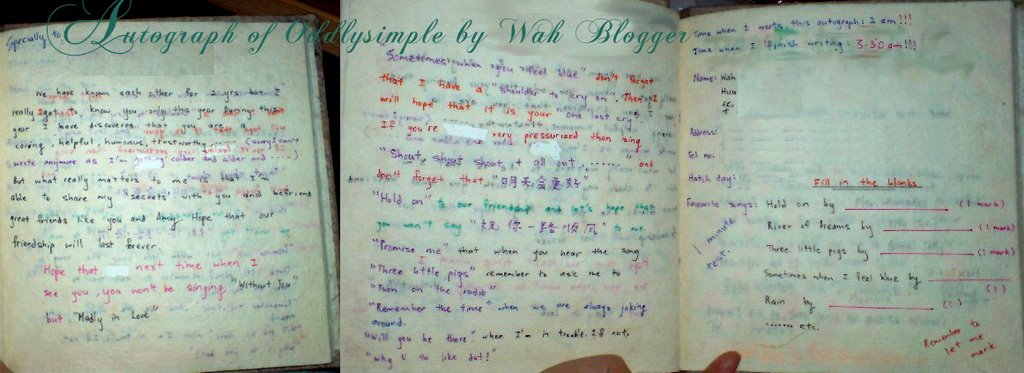 Autograph of Oddlysimple by Wah Blogger
Specially to
we have known each other for 2 yrs but I
really got to know you only this year. During this
year I have discovered that you are
caring, helpful, humorous, trustworthy, .... (sorry! can't
write anymore as I'm getting colder and colder and .....)
But what really matters to me is that I'm
able to share my secrets with you and befriend
great friends like you and Amy. Hope that our
friendship will last forever.
Hope that next time when I
see you, you won't be singing "Without You"
but "Madly in Love"
"Sometimes when you feel blue" don't forget
that I have a "shoulder to cry on". Then I
will hope that it is your "one last cry".
If you're very pressurized then sing
"Shout, shout shout, + all out, ......." and
don't forget that "明天会更好"
"Hold on" to our friendship and let's hope that
you won't say "祝你一路顺风" to me.
"Promise me" that when you hear the song
"Three little pigs" remember to ask me to
"Turn on the radio"
"Remember the time" when we are always joking
around.
"Will you be there" when I'm in trouble. If not,
"why U so like dat!"
Time when I wrote this autograph: 2 am!!!
Time when I finish writing: 3.30 am!!!
Name: Wah
Hua
Address:
Tel no:
Hatch day:
Fill in the blanks
Favourite songs: Hold on by (1 mark)
River of Dreams by (1 mark)
Three little pigs by (1 mark)
Sometimes when I feel blue by
(1)
Rain by (1)
....... etc.
1 minute
test.
Remember to
let me
mark